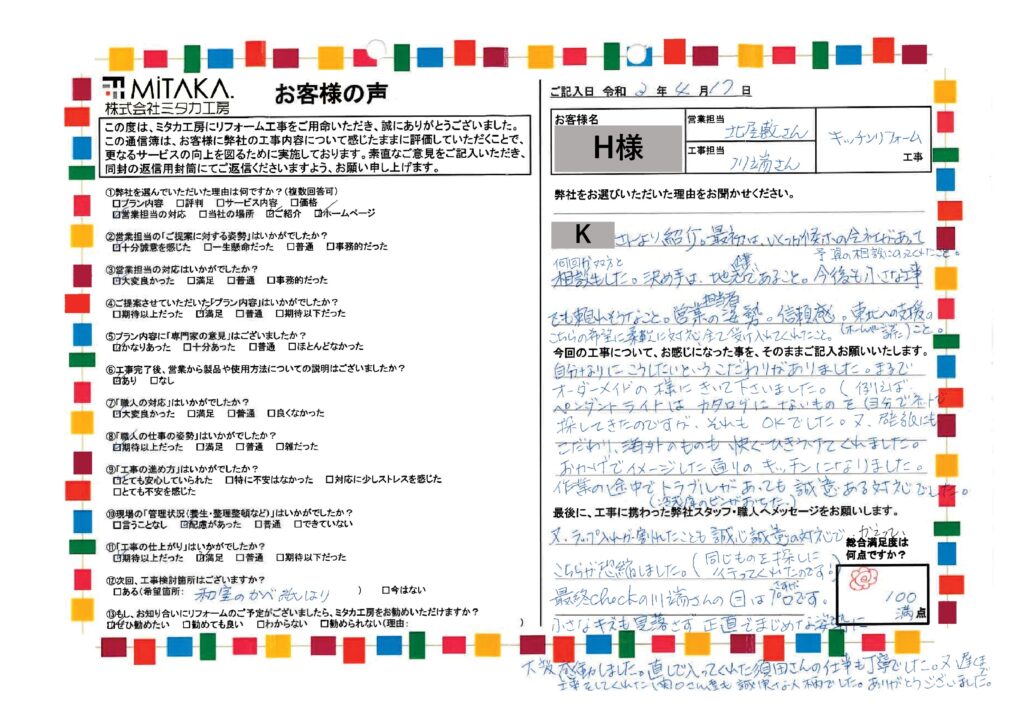 MiTAKA.
株式会社ミタカ工房
お客様の声
この度は、ミタカ工房にリフォーム工事をご用命いただき、誠にありがとうございました。
この通信簿は、お客様に弊社の工事内容について感じたままに評価していただくことで、
更なるサービスの向上を図るために実施しております。素直なご意見をご記入いただき、
同封の返信用封筒にてご返信くださいますよう、お願い申し上げます。
①弊社を選んでいただいた理由は何ですか?(複数回答可)
□プラン内容 □評判 □サービス内容 □価格
☑営業担当の対応 □当社の場所 ☑ご紹介 ☑ホームページ
②営業担当の「ご提案に対する姿勢」はいかがでしたか?
☑十分誠意を感じた □一生懸命だった □普通 □事務的だった
③営業担当の対応はいかがでしたか?
☑大変良かった □満足 □普通 □事務的だった
④ご提案させていただいた「プラン内容」はいかがでしたか?
□期待以上だった ☑満足 □普通 □期待以下だった
⑤プラン内容に「専門家の意見」はございましたか?
☑かなりあった □十分あった □普通 □ほとんどなかった
⑥工事完了後、営業から製品や使用方法についての説明はございましたか?
☑あり □なし
⑦「職人の対応」はいかがでしたか?
☑大変良かった □満足 □普通 □良くなかった
⑧「職人の仕事の姿勢」はいかがでしたか?
☑期待以上だった □満足 □普通 □雑だった
⑨「工事の進め方」はいかがでしたか?
□とても安心していられた □特に不安はなかった □対応に少しストレスを感じた
□とても不安を感じた
⑩現場の「管理状況(養生・整理整頓など)」はいかがでしたか?
□言うことなし ☑配慮があった □普通 □できていない
⑪「工事の仕上がり」はいかがでしたか?
☑期待以上だった ☑満足 □普通 □期待以下だった
⑫次回、工事検討箇所はございますか?
□ある(希望箇所: 和室のかべ ) □今はない
⑬もし、お知り合いにリフォームのご予定がございましたら、ミタカ工房をお勧めいただけますか?
☑ぜひ勧めたい □勧めても良い □わからない □勧められない(理由: )
ご記入日 令和 2 年 4 月 17 日
お客様名
H様
営業担当
北屋敷さん
工事担当
川端さん
キッチンリフォーム
工事
弊社をお選びいただいた理由をお聞かせください。
K さんより紹介。最初は、いくつか候補の会社があって
何回か双方と 予算の相談にのってくれたこと。
相談もした。決め手は、地元であること。今後も小さな工事
でも頼れそうなこと。営業の担当者姿勢。信頼感。東北への支援の
こちらの希望に素敵に対応全て受け入れてくれたこと (ホームページ読んだ)こと。
今回の工事について、お感じになった事を、そのままご記入お願いいたします。
自分なりにこうしたいというこだわりがありました。まるで
オーダーメイドの様にきいて下さいました。(例えば、
ペンダントライトは カタログにないものを(自分でネットで
探してきたのですが、それも OKでした。又、
こだわり、海外のものも快くひきうけてくれました。
おかげでイメージした通りのキッチンになりました。
作業の途中でトラブルがあっても誠意ある対応でした。
最後に、工事に携わった弊社スタッフ・職人へメッセージをお願いします。
又、ラップ入れが割れたことも誠心誠意の対応で、かえって
こちらが恐縮しました。(同じものを探しに
行ってくれたのです。)
最終checkの川端さんの目はさすがプロです。
小さなキズも見落さず 正直でまじめな姿勢に
大変感動しました。直しで入ってくれた須田さんの仕事も丁寧でした。又遅くまで
工事をしてくれた さん達も誠実な人柄でした。ありがとうございました。
総合満足度は
何点ですか?
100
満点